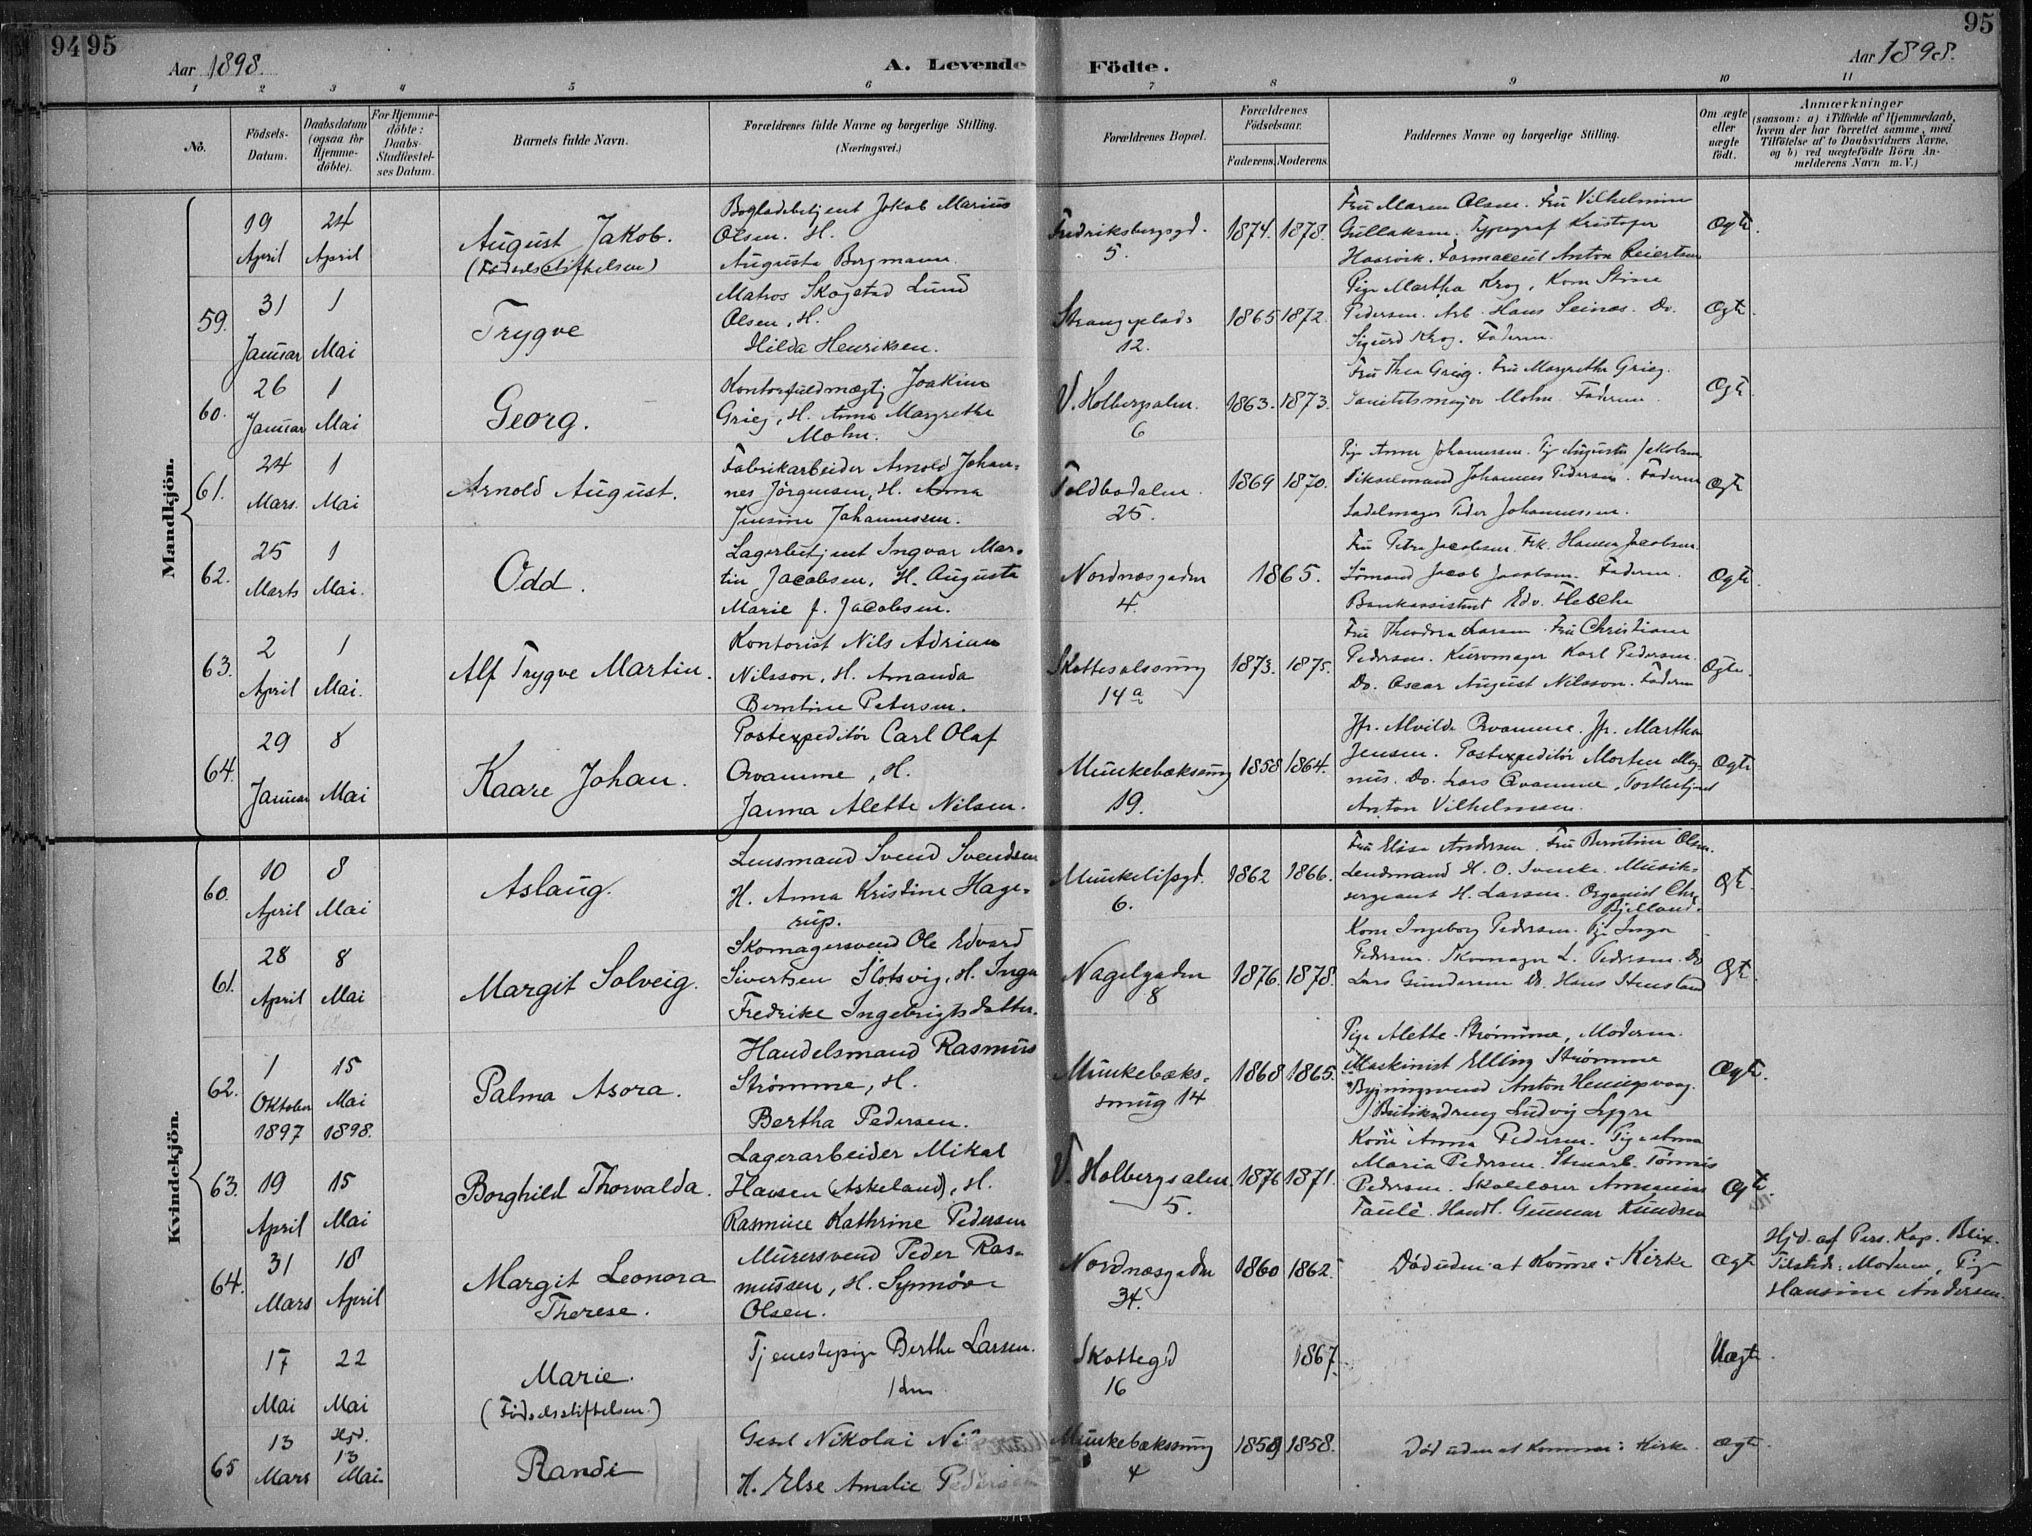 94 95
95
Aar 1898.
A. Levende Födte.
Aar 1898.
1 2 3 4 5 6 7 8 9 10 11
No.
Födsels-Datum.
Daabsdatum (ogsaa for Hjemme-döbte).
For Hjemme-döbte: Daabs-Stadfestel-ses Datum.
Barnets fulde Navn.
Forældrenes fulde Navne og borgerlige Stilling.
(Næringsvei.)
Forældrenes Bopæl.
Forældrenes Födselsaar.
Faderens. Moderens.
Faddernes Navne og borgerlige Stilling.
Om ægte eller uægte födt.
Anmærkninger
(saasom: a) i Tilfælde af Hjemmedaab,
hvem der har forrettet samme, med
Tilföielse af to Daabsvidners Navne,
og b) ved uægtefödte Börn An-
melderens Navn m. V.)
Mandkjön.
19 April 24 April
August Jakob.
(Fødselsstiftelsen)
Bogladebetjent Jakob Marius
Olsen. H.
Augusta Bergmann.
Fredriksbergsgd.
5.
1874. 1878.
Fru Maren Olsen. Fru Vilhelmine
Gullaksen. Typograf Kristofer
Haarvik. Farmaceut Anton Reiertsen
Ægte
59. 31 Januar 1 Mai
Trygve
Matros Skogstad Lund
Olsen, H.
Hilda Henriksen.
Strangeplads
12.
1865 1872.
Pige Martha Krog, Kone Stine
Pedersen. Arb. Hans Seines. Do.
Sigurd Krog. Faderen.
Ægte
60. 26 Januar 1 Mai
Georg.
Kontorfuldmægtig Joakim
Grieg, H. Anna Margrethe
Mohn.
V. Holbergsalm.
6
1863. 1873.
Fru Thea Grieg. Fru Margrethe Grieg.
Sanitetsmajor Mohn. Faderen.
Ægte
61. 24 Mars. 1 Mai
Arnold August.
Fabrikarbeider Arnold Johan-
nes Jørgensen, H. Anna
Jensine Johannesen.
Toldbodalm.
25.
1869 1870.
Pige Anna Johannesen. Pig Augusta Jakobsen
Vikselmand Johannes Pedersen. Faderen
Sadelmager Peder Johannessen.
Ægte
62. 25 Marts 1 Mai.
Odd.
Lagerbetjent Ingvar Mar-
tin Jacobsen, H. Augusta
Marie f. Jacobsen.
Nordnæsgaden
4.
1865.
Fru Petra Jacobsen. Frk. Hanna Jacobsen.
Sömand Jacob Jacobsen. Faderen.
Bankassistent Edv. Heltche
Ægte
63. 2 April 1 Mai.
Alf Trygve Martin.
Kontorist Nils Adrian
Nilsson, H. Amanda
Berntine Petersen.
Skottesalssmug
14a
1873. 1875.
Fru Theodora Larsen. Fru Christiane
Pedersen. Kurvmager Karl Pedersen.
Do. Oscar August Nilsson. Faderen
Ægte.
64. 29 Januar 8 Mai
Kaare Johan.
Postexpeditör Carl Olaf
Qvamme, H.
Janna Alette Nilsen.
Munkebæksmug
19.
1858 1864.
Jfr. Alvilde Qvamme. Jfr. Martha
Jensen. Postexpeditör Morten Mag-
nus. Do. Lars Qvamme, Postbetjent
Anton Vilhelmsen.
Ægte
Kvindekjön.
60. 10 April 8 Mai
Aslaug.
Lensmand Svend Svendsen
H. Anna Kristine Hage-
rup.
Munkelifsgd.
6.
1862 1866.
Fru Elise Andersen. Fru Berntine Olsen.
Lendsmand H. O. Svenke. Musik-
sergeant H. Larsen. Organist Chr.
Bjelland.
Ægte.
61. 28 April 8 Mai
Margit Solveig.
Skomagersvend Ole Edvard
Sivertsen Slotsvig, H. Inga
Fredrike Ingebrigtsdatter.
Nagelgaden
8
1876. 1878.
Kone Ingeborg Pedersen. Pige Inga
Pedersen. Skomager L. Pedersen. Do
Lars Gundersen Do. Hans Stensland
Ægte.
62. 1 Oktober 1897 15 Mai 1898.
Palma Asora.
Handelsmand Rasmus
Strømme, H.
Bertha Pedersen.
Munkebæks-
smug 14
1868 1865.
Pige Alette Strømme, Moderen.
Maskinist Elling Strømme
Bygningssvend Anton Heningsvaag.
Butiksdreng Ludvig Lygre
Ægte.
63. 19 April 15 Mai
Borghild Thorvalda.
Lagerarbeider Mikal
Hansen (Askeland), H.
Rasmine Kathrine Pedersen
V. Holbergsalm
5.
1876 1871.
Kone Anna Pedersen. Pige Anna
Maria Pedersen. Stuert. Tönnis
Pedersen. Skolelærer Ananias
Faule. Handl. Gunnar Knudsen
Ægte.
64. 31 Mars 18 April
Margit Leonora
Therese.
Murersvend Peder Ras-
mussen, H. Synnøve
Olsen.
Nordnæsgaden
34.
1860 1862.
Død uden at komme i Kirke
Ægte
Hjd. af Pers. Kap. Blix.
Tilstede: Moderen, Pige
Hansine Andersen.
17 Mai 22 Mai
Marie.
(Fødselsstiftelsen.)
Tjenestepige Berthe Larsen.
Skottegd
16
1867.
Uægte.
65 13 Mars Hjd. 13 Mai.
Randi
Gesel Nikolai
H. Else Amalie
Munkebækssmug
4
1859 1858.
Død uden at komme i Kirke.
Ægte.